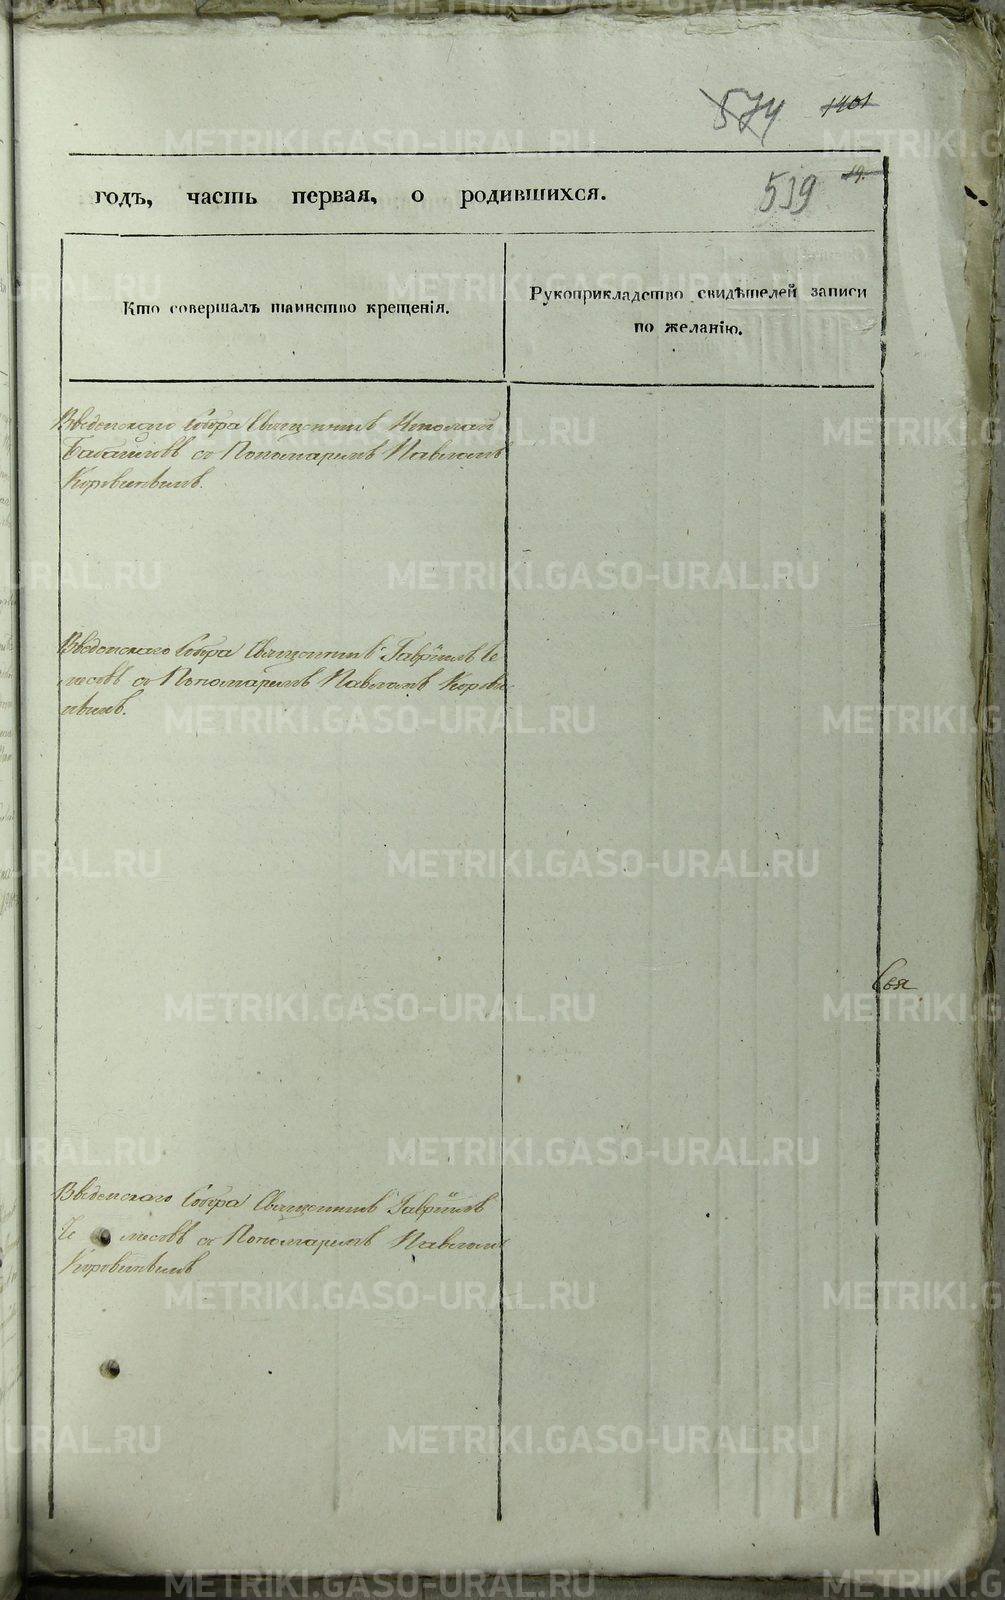 574 1401
годъ, часть первая, о родившихся. 539 19.
Кто совершалъ таинство крещенія.
Рукоприкладство свидѣтелей записи
по желанію.
Введенскаго Собора Священникъ Николай
съ Пономаремъ Павломъ
Коровинымъ.
Введенскаго Собора Священникъ Гавріилъ Че
съ Пономаремъ Павломъ Корови
нымъ.
Введенскаго Собора Священникъ Гавріилъ
Че съ Пономаремъ Павломъ
Коровинымъ
Свя
METRIKI.GASO-URAL.RU